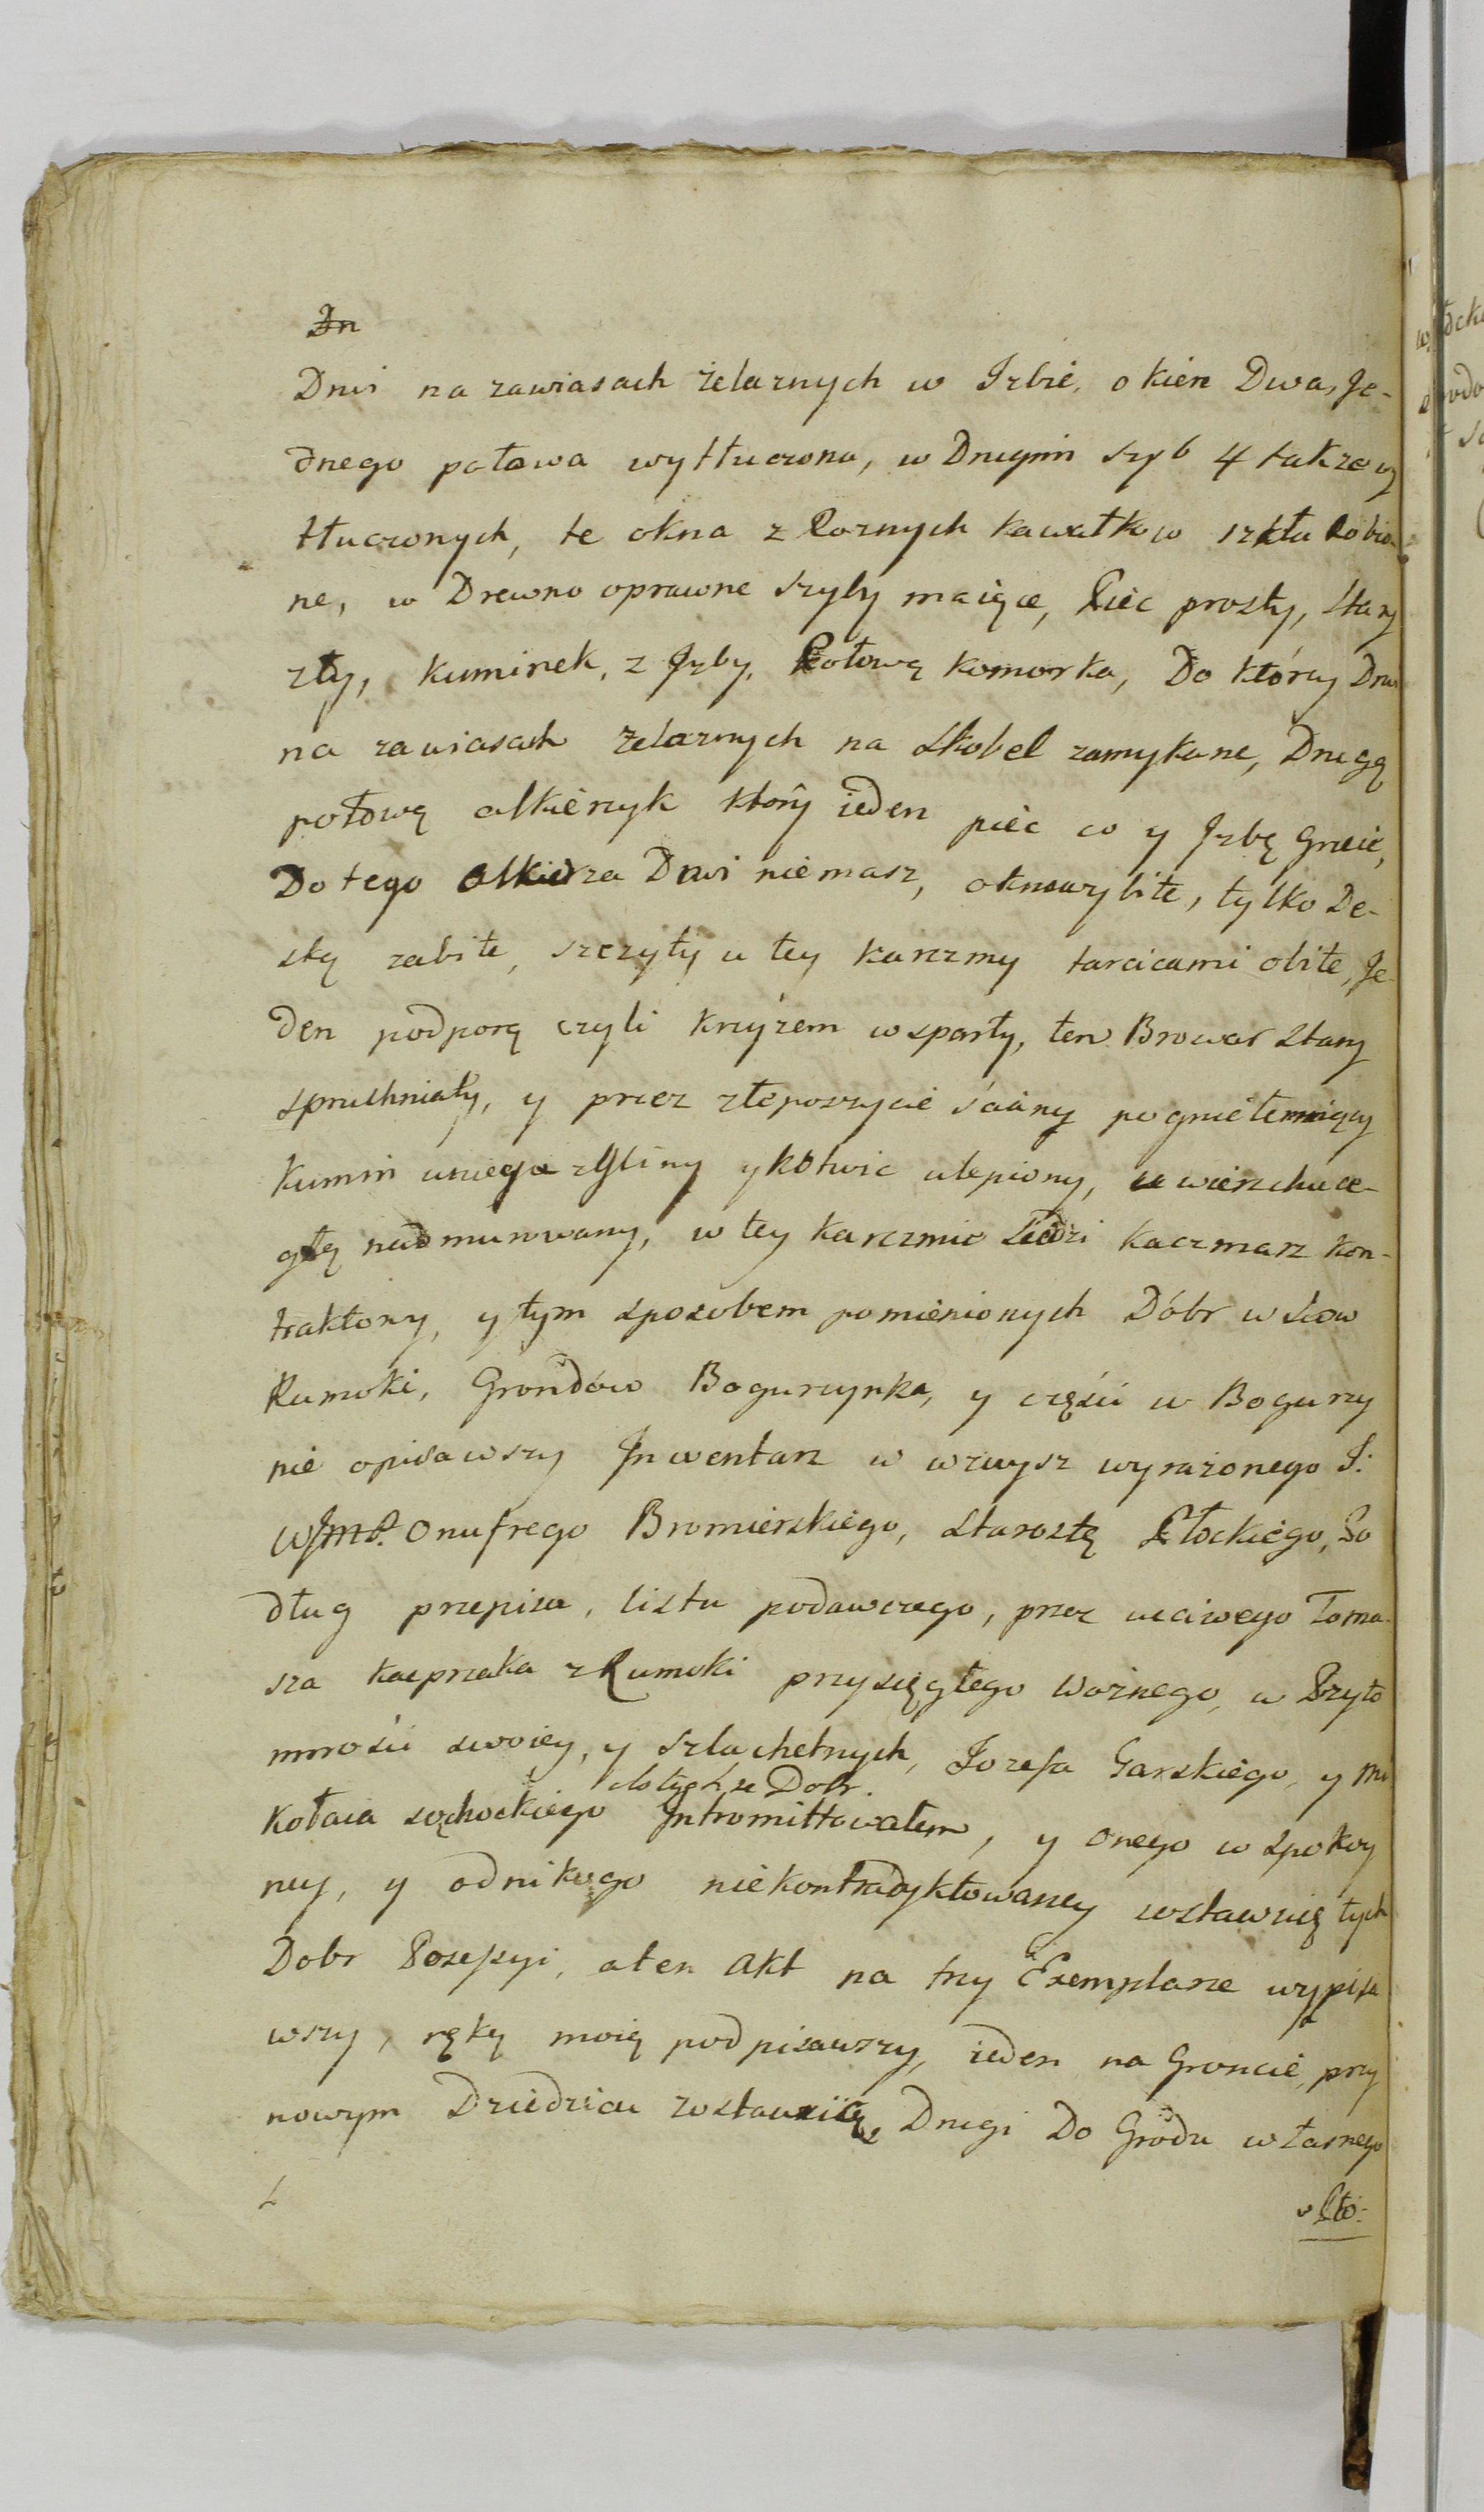 Dn
Drwi na zawiasach żelaznych w Izbie, okien Dwa, Je-
dnego połowa wytłuczona, w Drugim szyb 4 także wy
tłuczonych, te okna z Roznych kawałkow szkła Robio-
ne, w Drewno oprawne szyby maiące, Piec prosty, stary
zły, kuminek, z Izby, Połowę komorka, Do który Drwi
na zawiasach żelaznych na skobel zamykane, Drugą
połowę alkierzyk który ieden piec co y Izbę Grzeie,
Do tego Alkierza Drwi niemasz, okno wybite, tylko De-
ską zabite, szczyty u tey karczmy tarcicami obite, Je-
den podporą czyli krzyżem wsparty, ten Browar stary
spruchniały, y przez złe poszycie ściany pognite maiący
Kumin u niego z Gliny y kotwic ulepiony, u wierzchu ce-
głą nadmurwany, w tey karczmie siedzi kaczmarz kon-
traktowy, y tym sposobem pomienionych Dóbr wsiow
Rumoki, Grondów Bogurzynka, y części w Bogurzy
nie opisawszy Inwentarz w wzwysz wyrażonego J:
WJmP. Onufrego Bromierskiego, starostę Płockiego, Po
dług przepisu, listu podawczego, przez ucciwego Toma-
sza kacprzaka z Rumoki przysięgłego Woźnego, w Przyto
mności swoiey, y szlachetnych, Jozefa Garskiego, y Mi
do tych że Dobr.
kołaia sochockiego Intromittowałem, y onego w spokoy
ney, y od nikogo niekontradyktowaney zostawuię tych
Dobr Possessyi, a ten Akt na trzy Exemplarze wypisa
wszy, ręką moią podpisawszy, ieden na Groncie, przy
nowym Dziedzicu zostawuię, Drugi Do Grodu własnego
Pło: